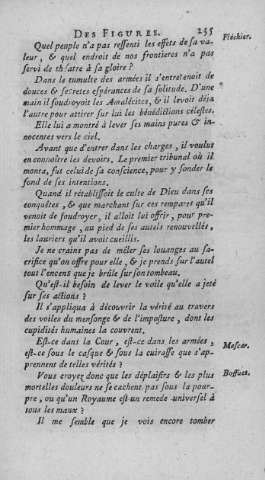 DES FIGURES. 255
Quel peuple n'a pas ressenti les effets de sa va- Fléchier.
leur, & quel endroit de nos frontieres n'a pas
servi de théatre à sa gloire ?
Dans le tumulte des armées il s'entretenoit de
douces & secretes espérances de sa solitude. D'une
main il foudroyoit les Amalécites, & il levoit déja
l'autre pour attirer sur lui les bénédictions célestes.
Elle lui a montré à lever ses mains pures & in-
nocentes vers le ciel.
Avant que d'entrer dans les charges, il voulut
en connoître les devoirs. Le premier tribunal où il
monta, fut celui de sa conscience, pour y sonder le
fond de ses intentions.
Quand il rétablissoit le culte de Dieu dans ses
conquêtes, & que marchant sur ces remparts qu'il
venoit de foudroyer, il alloit lui offrir, pour pre-
mier hommage, au pied de ses autels renouvellés,
les lauriers qu'il avoit cueillis.
Je ne crains pas de mêler ses louanges au sa-
crifice qu'on offre pour elle, & je prends sur l'autel
tout l'encens que je brûle sur son tombeau.
Qu'est-il besoin de lever le voile qu'elle a jeté
sur ses actions ?
Il s'appliqua à découvrir la vérité au travers
des voiles du mensonge & de l'imposture, dont les
cupidités humaines la couvrent.
Est-ce dans la Cour, est-ce dans les armées, Mascar.
est-ce sous le casque & sous la cuirasse que s'ap-
prennent de telles vérités ?
Vous croyez donc que les déplaisirs & les plus Bossuet.
mortelles douleurs ne se cachent pas sous la pour-
pre, ou qu'un Royaume est un remede universel à
tous les maux ?
Il me semble que je vois encore tomber